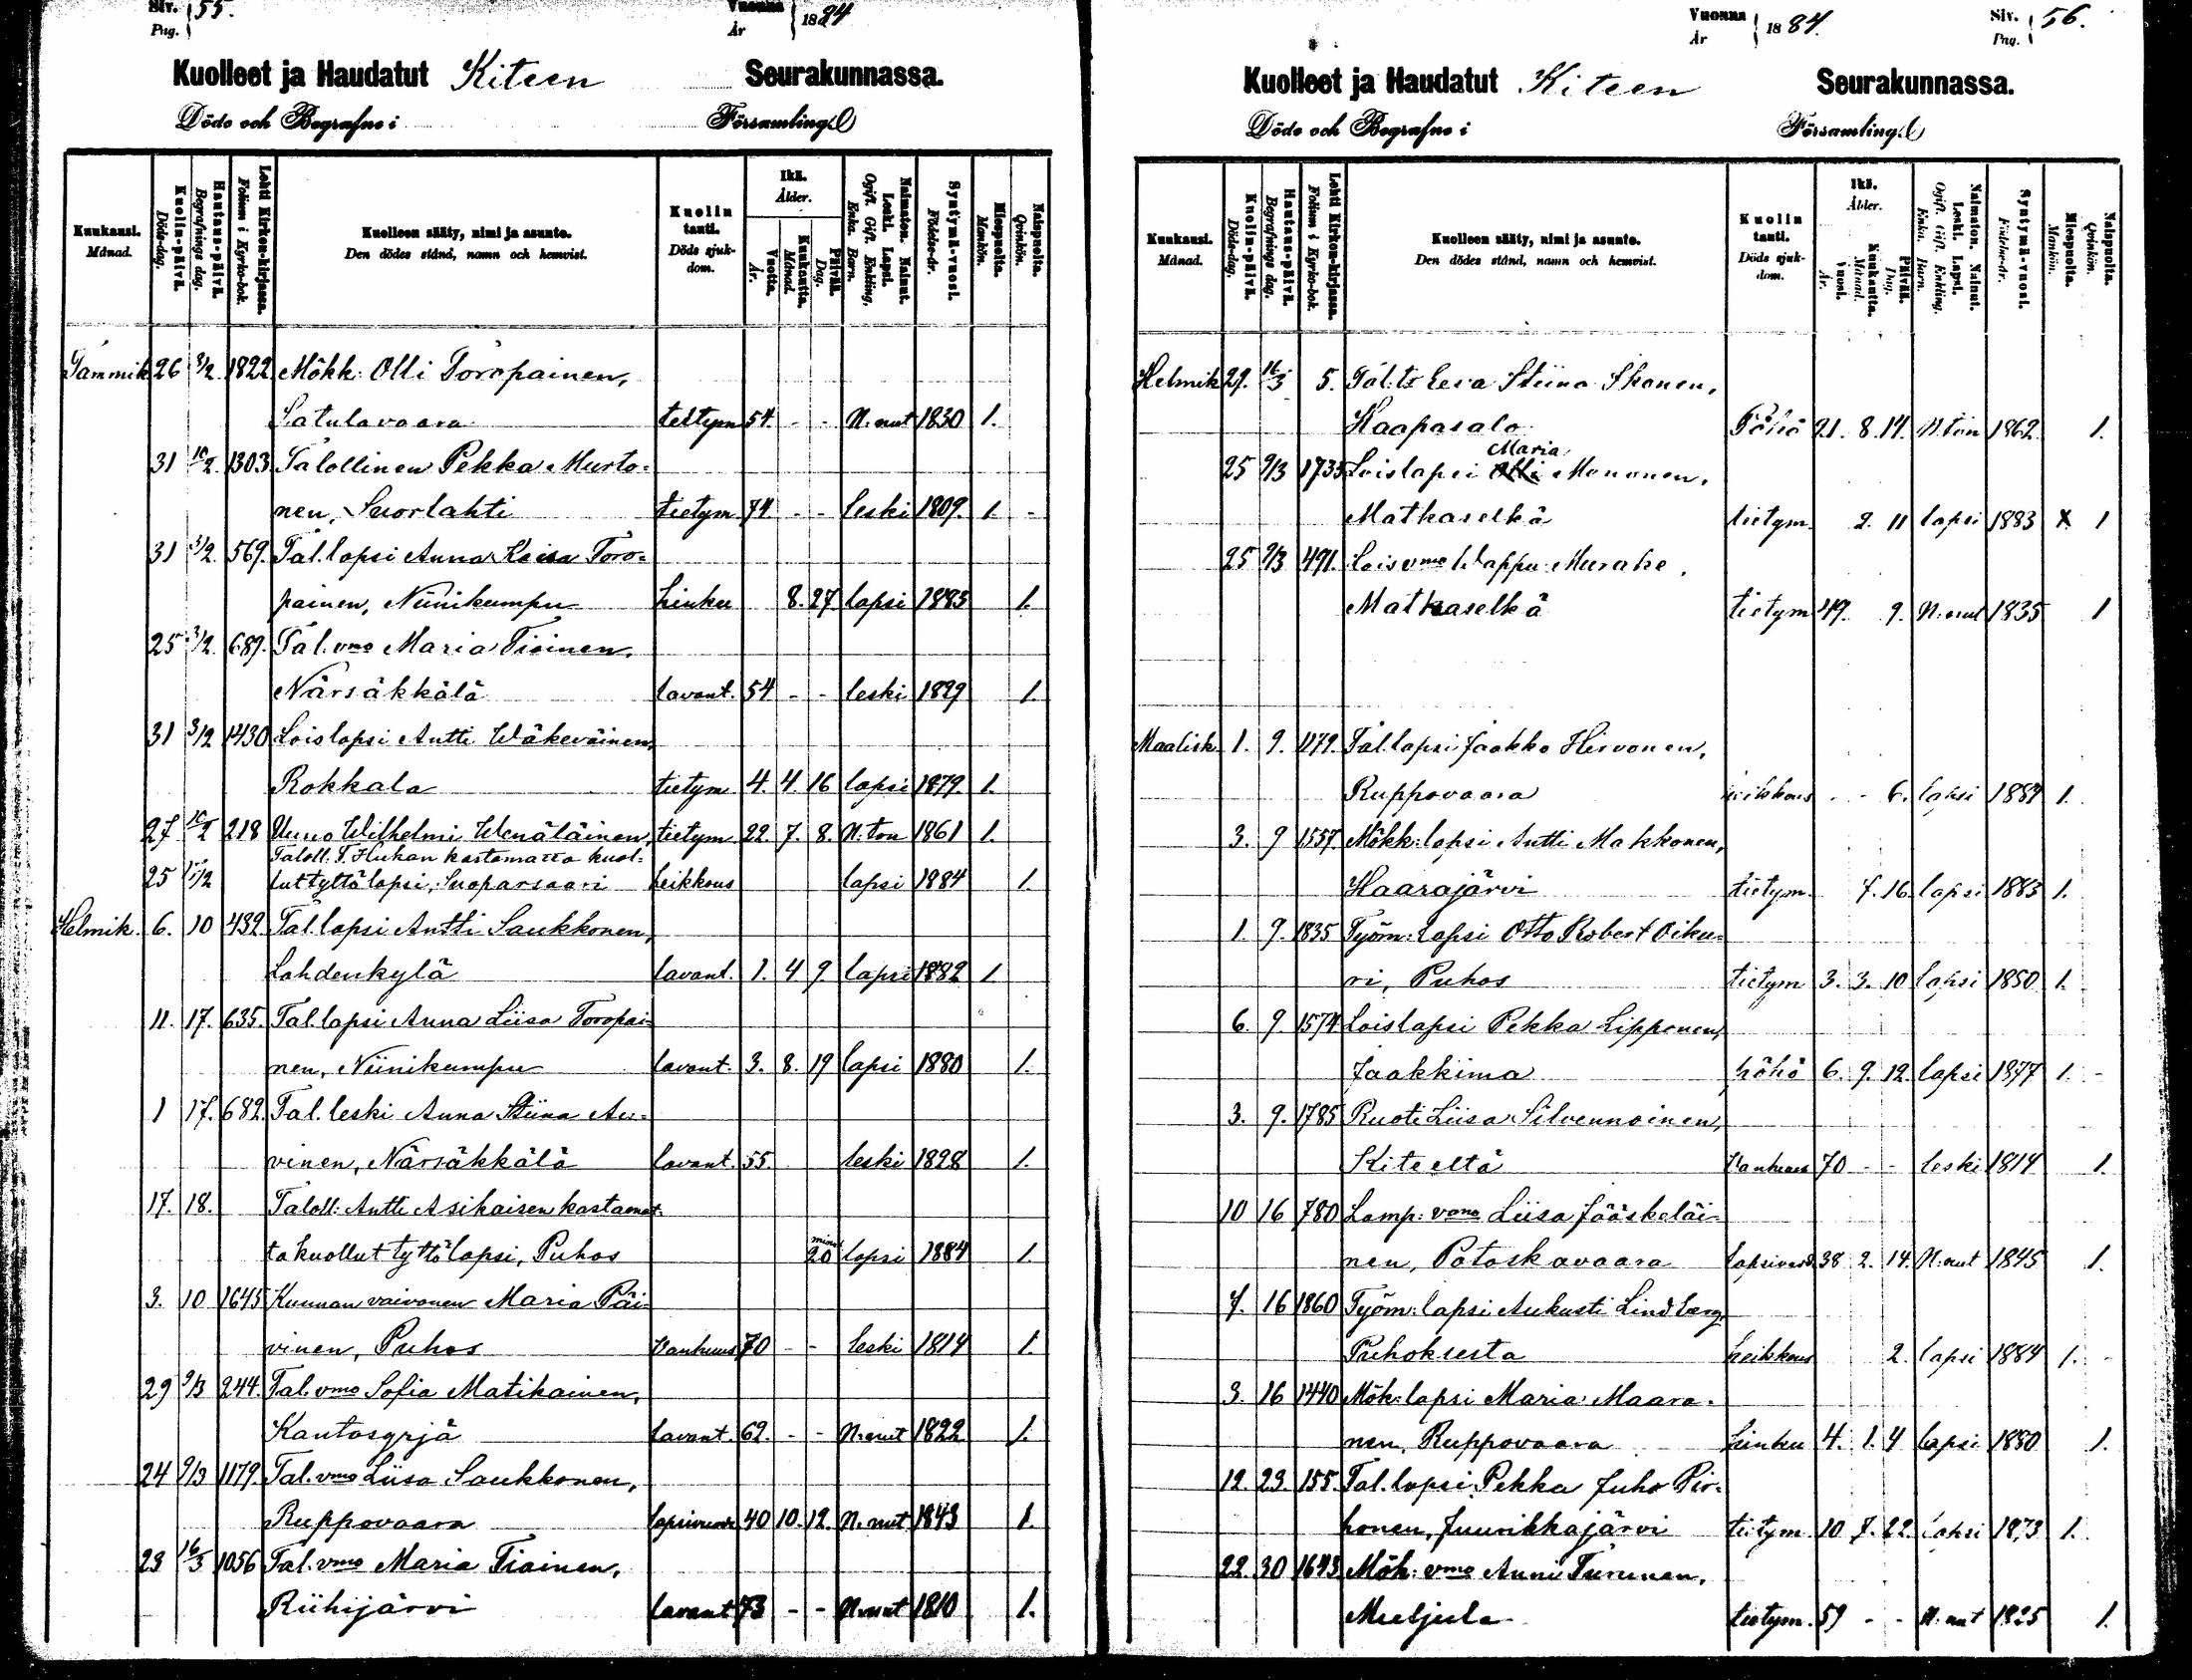 Siv. Pag. 55.
Vuonna År 1884
Kuolleet ja Haudatut Kiteen Seurakunnassa.
Döde och Begrafne i Församling.
Kuukausi. Månad.
Kuolin-päivä. Döds-dag.
Hautaus-päivä. Begrafnings dag.
Lehti Kirkon-kirjassa. Folium i Kyrko-bok.
Kuolleen sääty, nimi ja asunto. Den dödes stånd, namn och hemvist.
Kuolin tauti. Döds sjukdom.
Ikä. Ålder.
Vuotta. År.
Kuukautta. Månad.
Päivää. Dag.
Naimaton. Nainut. Leski. Lapsi. Ogift. Gift. Enkling, Enka. Barn.
Syntymä-vuosi. Födelse-år.
Miespuolta. Mankön.
Naispuolta. Qvinkön.
Tammik 26 3/2 1822 Mökk: Olli Toropainen,
Satulavaara tietym 54. - - N:nut 1830 1.
31 10/2 1303 Talollinen Pekka Murto-
nen, Suorlahti tietym 74. - - leski 1809. 1. -
31 3/2 569. Tal. lapsi Anna Kaisa Toro-
painen, Niinikumpu hinku 8. 27 lapsi 1883 1.
25 3/2 689. Tal. vmo Maria Tiainen,
Närsäkkälä lavant. 54 - - leski 1829 1.
31 3/2 1430 Lois lapsi Antti Wäkeväinen,
Rokkala tietym 4. 4. 16 lapsi 1879. 1.
27. 10/2 218 Uuno Wilhelmi Wenäläinen, tietym. 22. 7. 8. N:ton 1861 1.
Taloll. T. Hukan kastamatta kuol-
25 /2 lut tyttö lapsi, Suoparsaari heikkous lapsi 1884 1.
Helmik. 6. 10 432. Tal. lapsi Antti Saukkonen,
Lahdenkylä lavant. 1. 4 9. lapsi 1882 1.
11. 17. 635. Tal. lapsi Anna Liisa Toropai-
nen, Niinikumpu lavant. 3. 8. 19 lapsi 1880 1.
1 17. 682. Tal. leski Anna Stiina Au-
vinen, Närsäkkälä lavant. 55. leski 1828 1.
17. 18. Taloll: Antti Asikaisen kastamat-
ta kuollut tyttö lapsi, Puhos min: 20 lapsi 1884 1.
3. 10 1645 Kunnan vaivonen Maria Päi-
vinen, Puhos Vanhuus 70 - - leski 1814 1.
29 9/3 244. Tal. vmo Sofia Matikainen,
Kantosyrjä lavant. 62. - - N:nut 1822 1.
24 9/3 1179. Tal. vmo Liisa Saukkonen,
Ruppovaara lapsivuode 40 10. 12. N. nut 1843 1.
23 16/3 1056 Tal. vmo Maria Tiainen,
Riihijärvi lavant 73 - - N:nut 1810 1.
Vuonna År 1884.
Siv. Pag. 56.
Kuolleet ja Haudatut Kiteen Seurakunnassa.
Döde och Begrafne i Församling.
Kuukausi. Månad.
Kuolin-päivä. Döds-dag.
Hautaus-päivä. Begrafnings dag.
Lehti Kirkon-kirjassa. Folium i Kyrko-bok.
Kuolleen sääty, nimi ja asunto. Den dödes stånd, namn och hemvist.
Kuolin tauti. Döds sjukdom.
Ikä. Ålder.
Vuosi. År.
Kuukautta. Månad.
Päivää. Dag.
Naimaton. Nainut. Leski. Lapsi. Ogift. Gift. Enkling. Enka. Barn.
Syntymä-vuosi. Födelse-år.
Miespuolta. Mankön.
Naispuolta. Qvinkön.
Helmik 29. 16/3 5. Tal:tr Eeva Stiina Ikonen,
Haapasalo. Pöhö 21. 8. 14. N:tön 1862. 1.
Maria
25 9/3 1735 Lois lapsi Olli Mononen,
Matkaselkä tietym. 2. 11 lapsi 1883 1
25 9/3 491. Lois vmo Wappu Murake,
Matkaselkä tietym 49. 9. N:nut 1835 1
Maalisk. 1. 9. 1179. Tal. lapsi Jaakko Hirvonen,
Ruppovaara heikkous - - 6. lapsi 1884 1.
3. 9 1557. Mökk: lapsi Antti Makkonen,
Haarajärvi tietym. 7. 16. lapsi 1883 1.
1. 9. 1835 Työm: lapsi Otto Robert Oiku-
ri, Puhos tietym 3. 3. 10 lapsi 1880 1.
6. 9. 1574 Lois lapsi Pekka Lipponen,
Jaakkima höhö 6. 9. 12. lapsi 1877 1. -
3. 9. 1785 Ruoti Liisa Silvennoinen,
Kiteeltä Vanhuus 70 - - leski 1814 1.
10 16 780 Lamp: vmo Liisa Jääskeläi-
nen, Potoskavaara lapsivuod. 38 2. 14. N:nut 1845 1.
7. 16 1860 Työm: lapsi Aukusti Lindberg,
Puhoksesta heikkous 2. lapsi 1884 1. -
3. 16 1440 Mök: lapsi Maria Maara-
nen, Ruppovaara hinku 4. 1. 4 lapsi 1880 1.
12. 23. 155. Tal. lapsi Pekka Juho Pir-
honen, Juurikkajärvi tietym 10 7. 22. lapsi 1873 1.
22. 30 1643 Mök: vmo Anni Turunen,
Muljula tietym. 59 - - N:nut 1825 1.